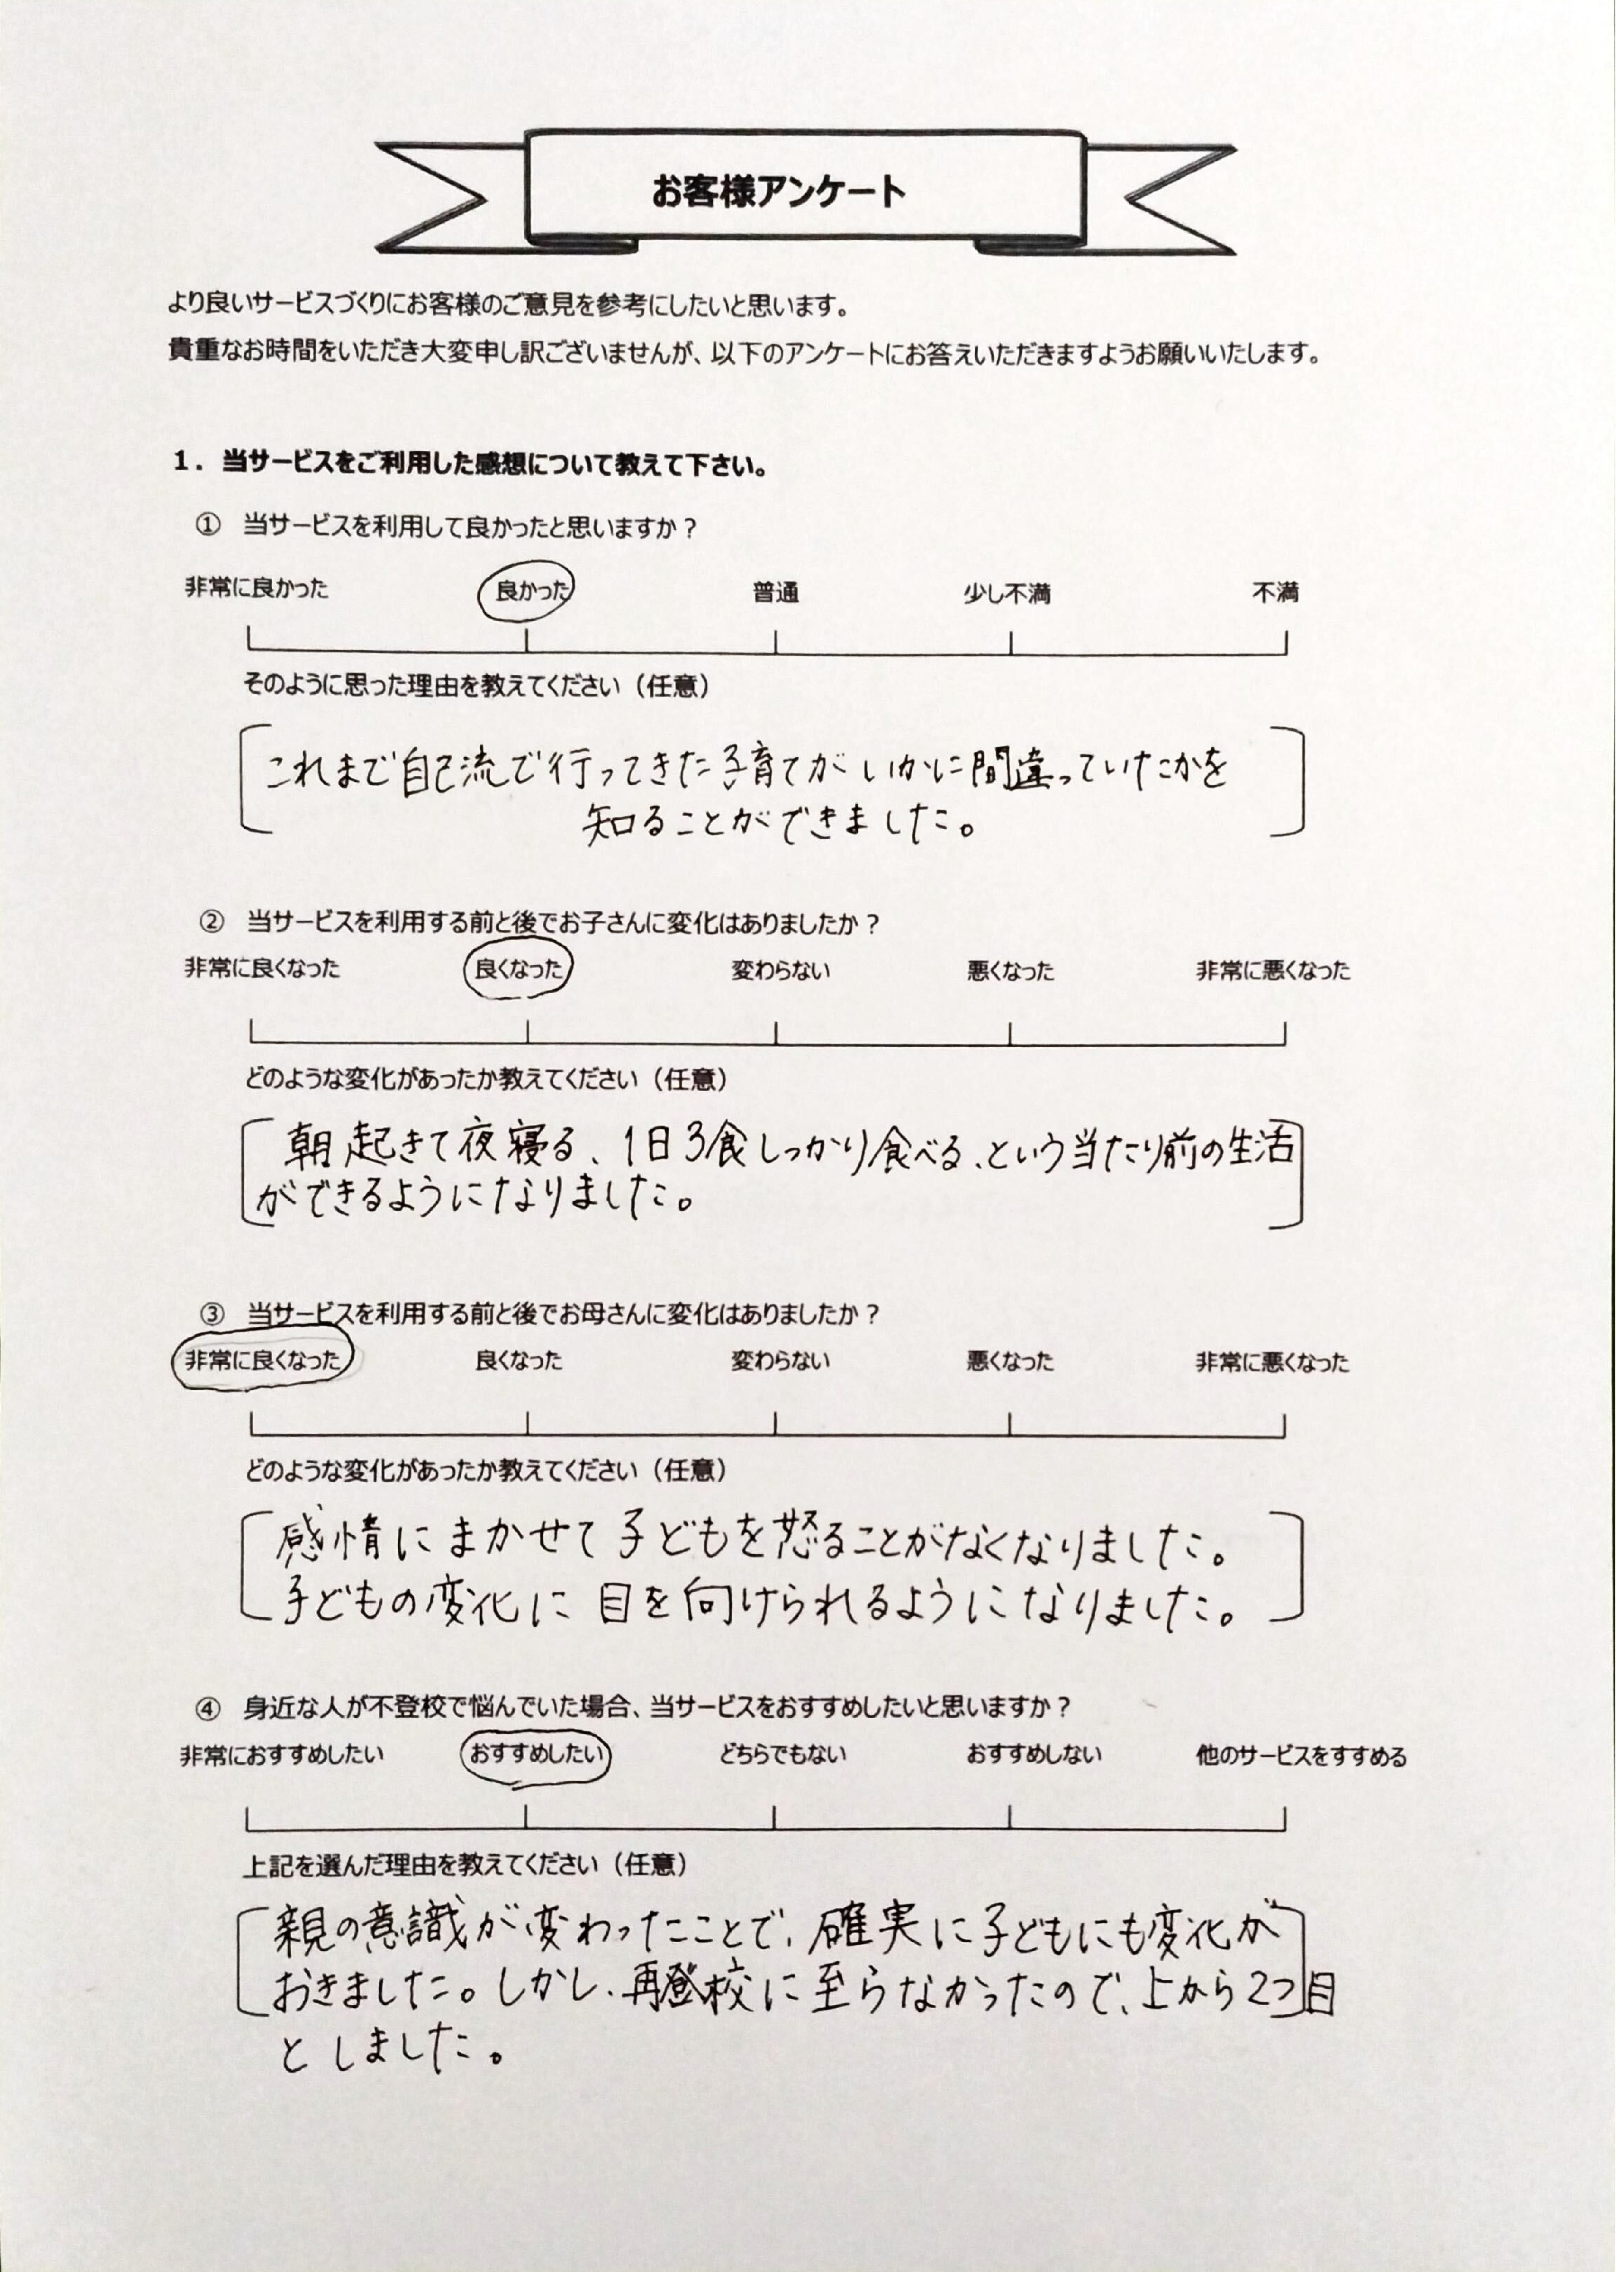 お客様アンケート
より良いサービスづくりにお客様のご意見を参考にしたいと思います。
貴重なお時間をいただき大変申し訳ございませんが、以下のアンケートにお答えいただきますようお願いいたします。
1．当サービスをご利用した感想について教えて下さい。
① 当サービスを利用して良かったと思いますか？
非常に良かった 良かった 普通 少し不満 不満
そのように思った理由を教えてください（任意）
これまで自己流で行ってきた子育てがいかに間違っていたかを
知ることができました。
② 当サービスを利用する前と後でお子さんに変化はありましたか？
非常に良くなった 良くなった 変わらない 悪くなった 非常に悪くなった
どのような変化があったか教えてください（任意）
朝起きて夜寝る、1日3食しっかり食べる、という当たり前の生活
ができるようになりました。
③ 当サービスを利用する前と後でお母さんに変化はありましたか？
非常に良くなった 良くなった 変わらない 悪くなった 非常に悪くなった
どのような変化があったか教えてください（任意）
感情にまかせて子どもを怒ることがなくなりました。
子どもの変化に目を向けられるようになりました。
④ 身近な人が不登校で悩んでいた場合、当サービスをおすすめしたいと思いますか？
非常におすすめしたい おすすめしたい どちらでもない おすすめしない 他のサービスをすすめる
上記を選んだ理由を教えてください（任意）
親の意識が変わったことで、確実に子どもにも変化が
おきました。しかし、再登校に至らなかったので、上から2つ目
としました。